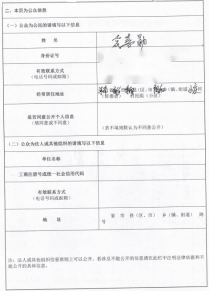 二、本页为公众信息
（一）公众为公民的请填写以下信息
姓 名
身份证号
有效联系方式
（电话号码或邮箱）
经常居住地址
是否同意公开个人信息
（填同意或不同意）
（若不填则默认为不同意公开）
（二）公众为法人或其他组织的请填写以下信息
单位名称
工商注册号或统一社会信用代码
有效联系方式
（电话号码或邮箱）
地 址
省 市 县（区、市） 乡（镇、街道） 路
号
注：法人或其他组织信息原则上可以公开，若涉及不能公开的信息请在此栏中注明法律依据和不
能公开的具体信息。